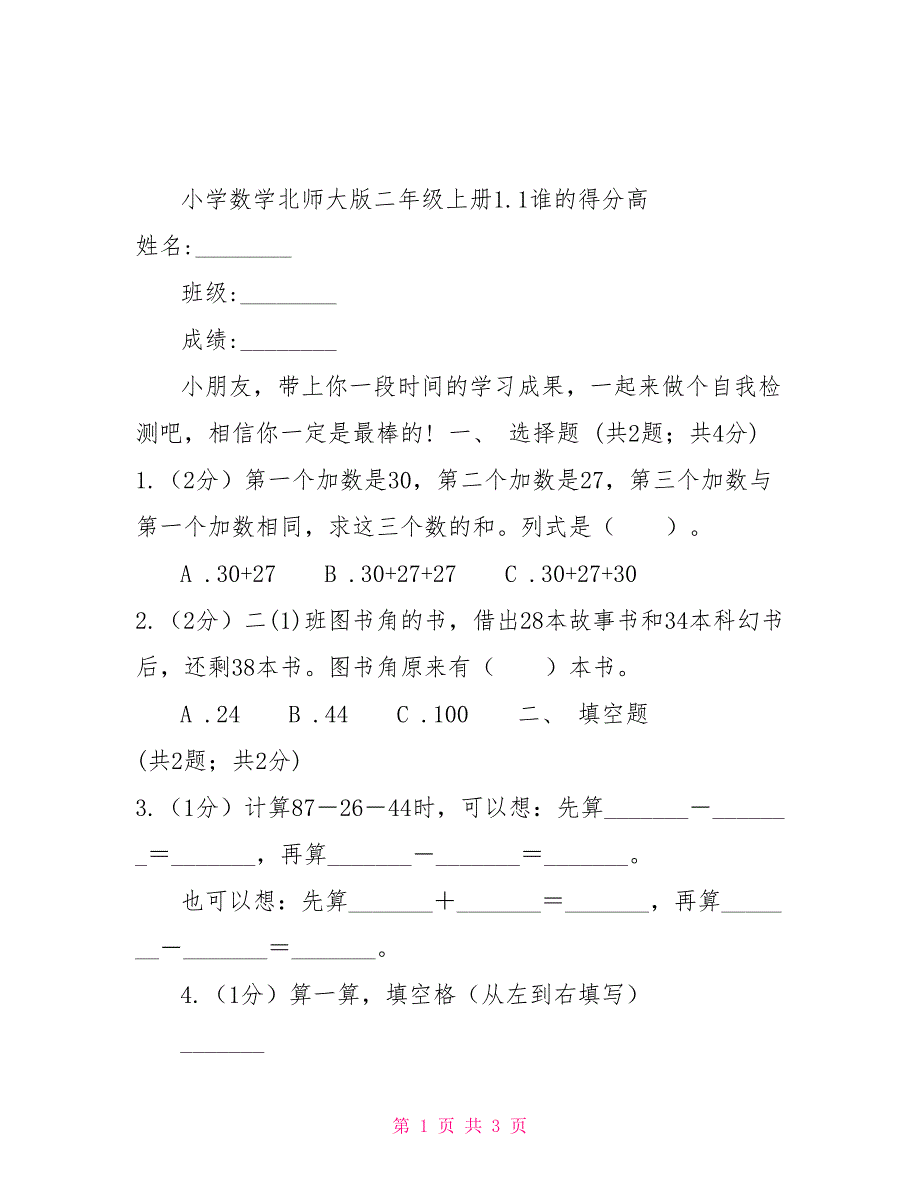 小学数学北师大版二年级上册1.1谁的得分高
姓名:________
班级:________
成绩:________
小朋友，带上你一段时间的学习成果，一起来做个自我检
测吧，相信你一定是最棒的! 一、 选择题 (共2题；共4分)
1.（2分）第一个加数是30，第二个加数是27，第三个加数与
第一个加数相同，求这三个数的和。列式是（　　）。
A .30+27　　B .30+27+27　　C .30+27+30
2.（2分）二(1)班图书角的书，借出28本故事书和34本科幻书
后，还剩38本书。图书角原来有（　　）本书。
A .24　　B .44　　C .100　　二、 填空题
(共2题；共2分)
3.（1分）计算87－26－44时，可以想：先算_______－______
_＝_______，再算_______－_______＝_______。
也可以想：先算_______＋_______＝_______，再算_____
__－_______＝_______。
4.（1分）算一算，填空格（从左到右填写）
_______
第 1 页 共 3 页